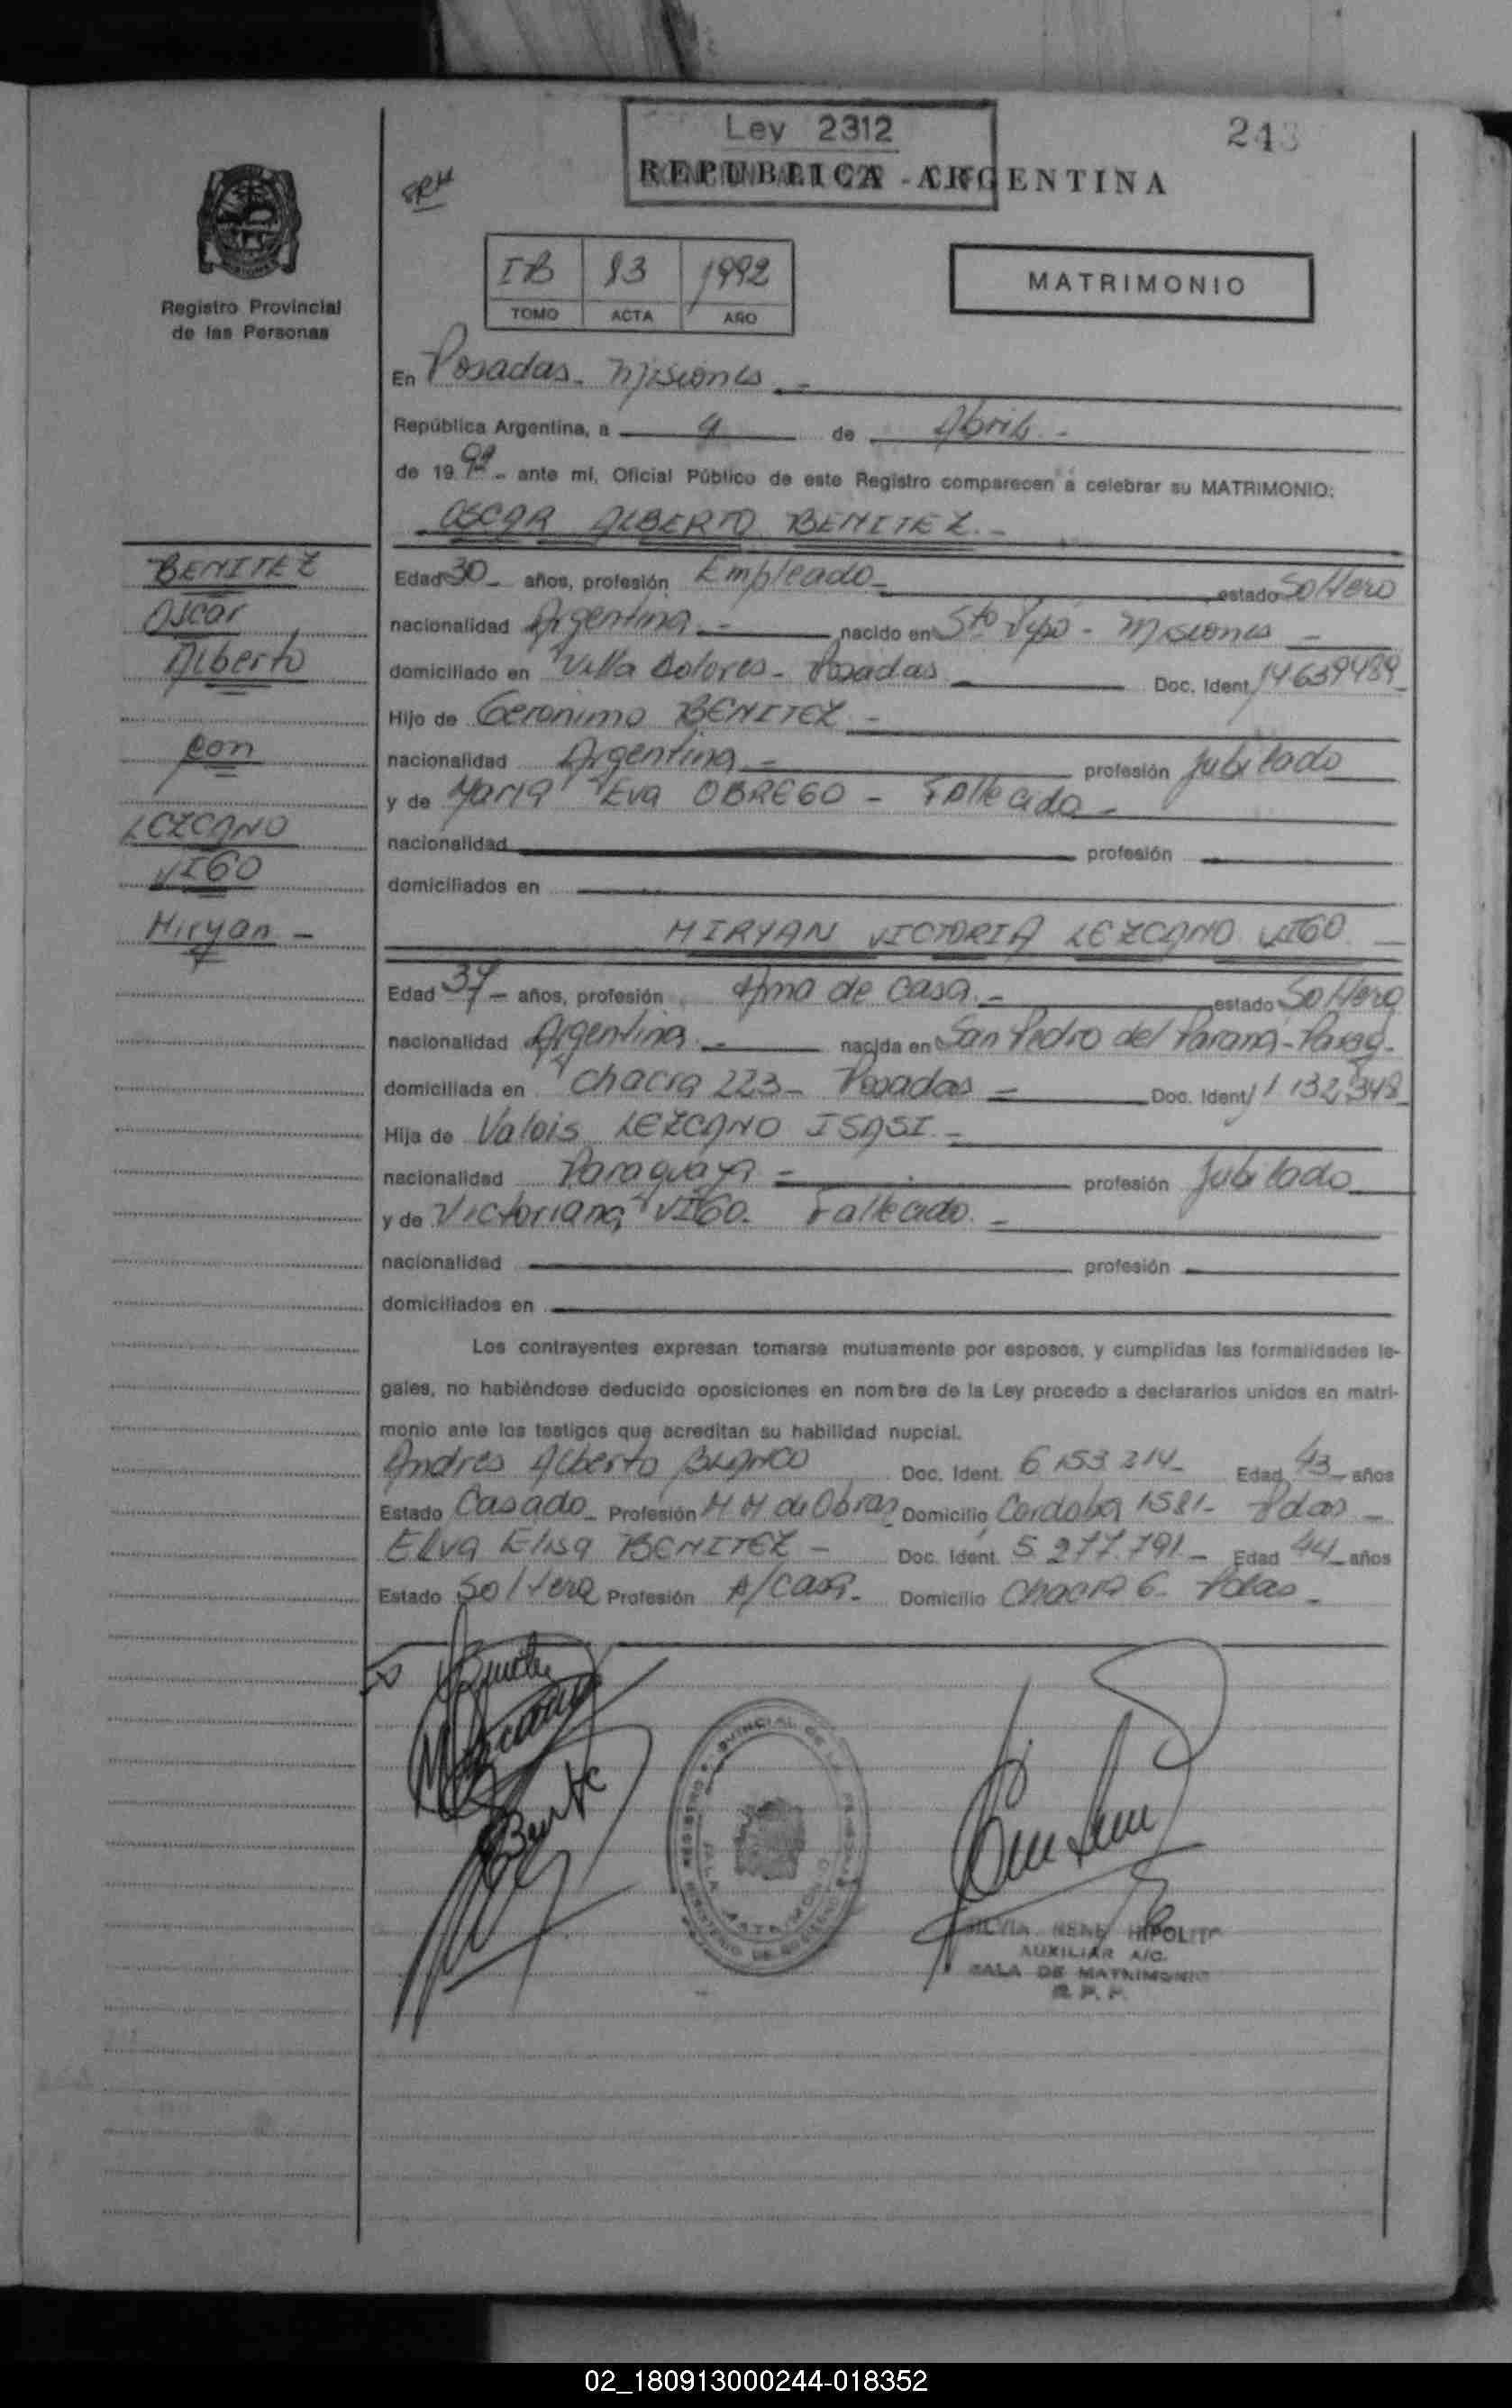 Ley 2312
243
REPUBLICA ARGENTINA
Registro Provincial
de las Personas
IB 83 1992
TOMO ACTA AÑO
MATRIMONIO
En Posadas - Misiones -
República Argentina, a 9 de Abril -
de 19 92 - ante mí, Oficial Público de este Registro comparecen a celebrar su MATRIMONIO:
OSCAR ALBERTO BENITEZ -
BENITEZ
Oscar
Alberto
con
LEZCANO
VIGO
Miryan -
Edad 30 - años, profesión Empleado - estado Soltero
nacionalidad Argentina - nacido en Sto Pipó - Misiones -
domiciliado en Villa Dolores - Posadas Doc. Ident. 14639489
Hijo de Geronimo BENITEZ -
nacionalidad Argentina - profesión Jubilado
y de Maria Eva OBREGO - Fallecida -
nacionalidad profesión
domiciliados en
MIRYAN VICTORIA LEZCANO VIGO -
Edad - años, profesión Ama de Casa - estado Soltera
nacionalidad Argentina - nacida en San Pedro del Paraná - Parag.
domiciliada en Chacra 223 - Posadas - Doc. Ident.
Hija de Valois LEZCANO ISASI -
nacionalidad Paraguaya - profesión Jubilado
y de Victoriana VIGO - Fallecida -
nacionalidad profesión
domiciliados en
Los contrayentes expresan tomarse mutuamente por esposos, y cumplidas las formalidades le-
gales, no habiéndose deducido oposiciones en nombre de la Ley procedo a declararlos unidos en matri-
monio ante los testigos que acreditan su habilidad nupcial.
Andres Alberto BLANCO Doc. Ident. 6.153.214 - Edad 43 - años
Estado Casado - Profesión M.M de Obras Domicilio Cordoba 1581 - Pdas -
Elva Elisa BENITEZ - Doc. Ident. 5.277.791 - Edad 44 años
Estado Soltera Profesión A/Casa - Domicilio Chacra 6 - Pdas -
SILVIA RENE HIPOLITO
AUXILIAR A/C.
SALA DE MATRIMONIO
R. P. P.
02_180913000244-018352